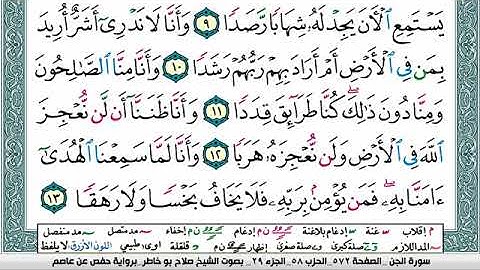 يَسْتَمِعِ ٱلْأٓنَ يَجِدْ لَهُۥ شِهَابًا رَّصَدًا ٩ وَأَنَّا لَا نَدْرِيٓ أَشَرٌّ أُرِيدَ
بِمَن فِي ٱلْأَرْضِ أَمْ أَرَادَ بِهِمْ رَبُّهُمْ رَشَدًا ١٠ وَأَنَّا مِنَّا ٱلصَّٰلِحُونَ
وَمِنَّا دُونَ ذَٰلِكَۖ كُنَّا طَرَآئِقَ قِدَدًا ١١ وَأَنَّا ظَنَنَّآ أَن لَّن نُّعْجِزَ
ٱللَّهَ فِي ٱلْأَرْضِ وَلَن نُّعْجِزَهُۥ هَرَبًا ١٢ وَأَنَّا لَمَّا سَمِعْنَا ٱلْهُدَىٰٓ
ءَامَنَّا بِهِۦۖ فَمَن يُؤْمِنۢ بِرَبِّهِۦ فَلَا يَخَافُ بَخْسًا وَلَا رَهَقًا ١٣
م إقلاب غنة إدغام بلاغنة إدغام إخفاء مد متصل مد منفصل
المد اللازم صلة كبرى إظهار قلقلة طبيعي اللون الأزرق لا يلفظ
سورة الجن . الصفحة ٥٧٢ . الحزب ٥٨ . الجزء ٢٩ . بصوت الشيخ صلاح بو خاطر . برواية حفص عن عاصم